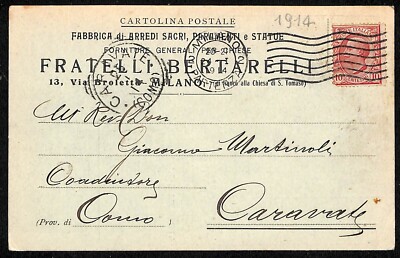 CARTOLINA POSTALE
1914
FABBRICA di ARREDI SACRI, PARAMENTI e STATUE
FORNITURE GENERALI per CHIESE
FRATELLI BERTARELLI
13, Via Broletto MILANO (di fianco alla Chiesa di S. Tomaso)
CARAVATE
(COMO)
10 10
Al Rev Don
Giacomo Martinoli
Coadiutore
(Prov. di) Como
Caravate